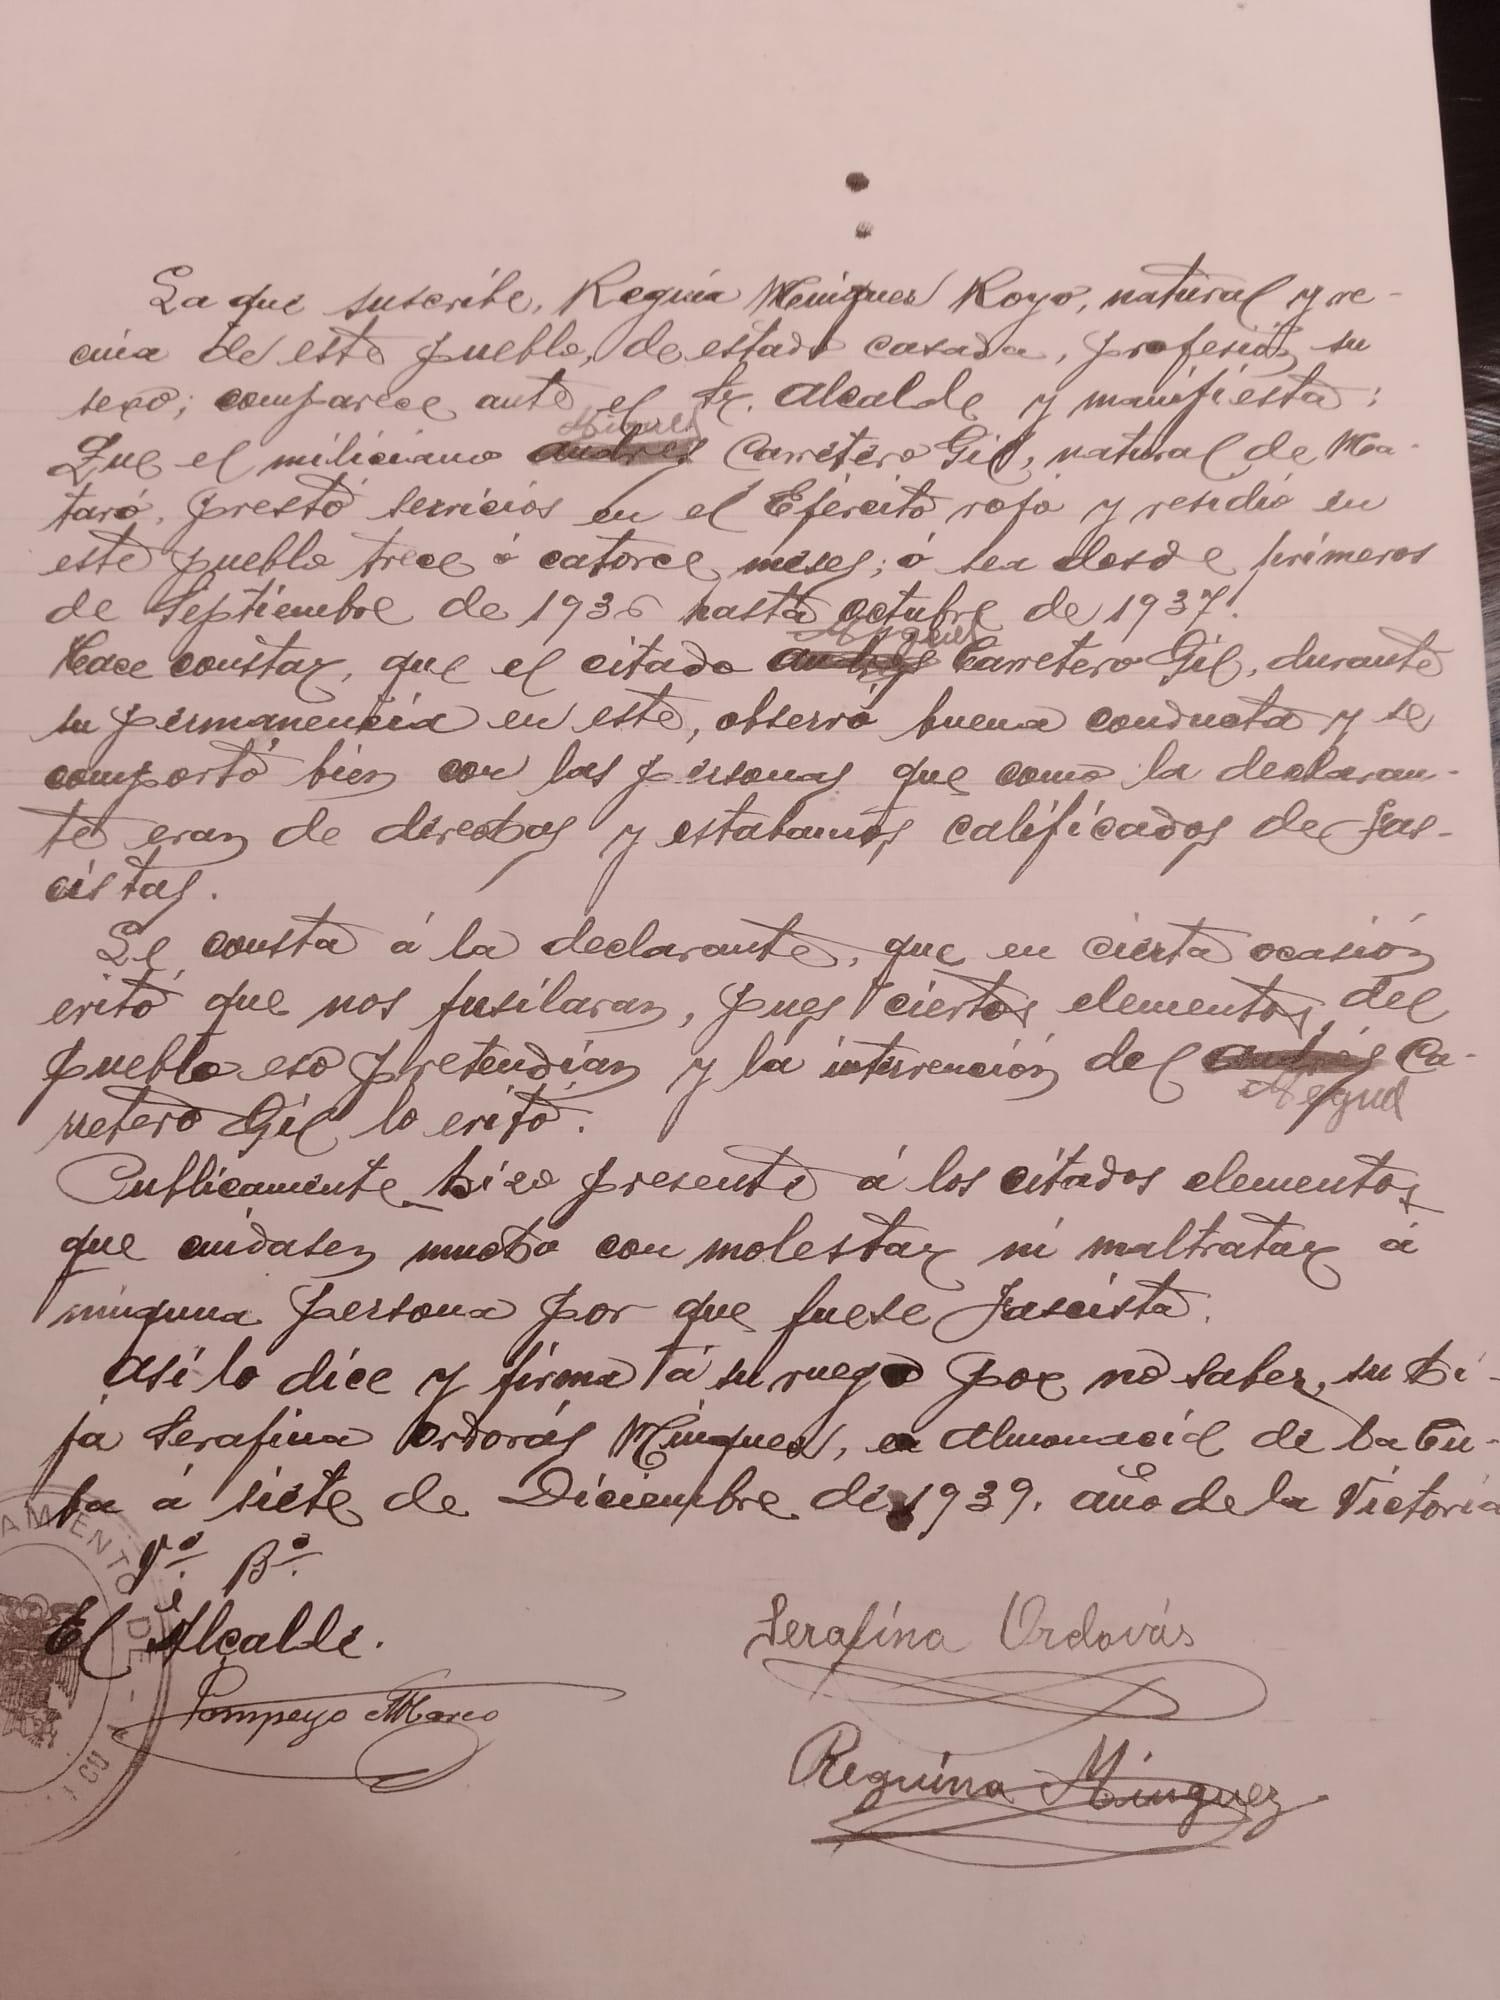 La que suscribe, Reguina Minguez Royo, natural y ve-
cina de este pueblo, de estado casada, profesión su
sexo; comparece ante el Sr. Alcalde y manifiesta:
Miguel
Que el miliciano Andres Carretero Gil, natural de Ma-
taró, prestó servicios en el Ejército rojo y residió en
este pueblo trece ó catorce meses; ó sea desde primeros
de Septiembre de 1936 hasta octubre de 1937.
Miguel
Hace constar, que el citado Andres Carretero Gil, durante
su permanencia en este, observó buena conducta y se
comportó bien con las personas que como la declaran-
te eran de derechas y estabamos calificados de fas-
cistas.
Le consta á la declarante, que en cierta ocasión
evitó que nos fusilaran, pues ciertos elementos del
pueblo eso pretendian y la intervención del Andrés Ca-
Miguel
rretero Gil lo evitó.
Publicamente hizo presente á los citados elementos
que cuidasen mucho con molestar ni maltratar á
ninguna persona por que fuese fascista.
Asi lo dice y firma á su ruego por no saber, su hi-
ja Serafina Ordovás Minguez, en Almonacid de la Cu-
ba á siete de Diciembre de 1939. año de la Victoria
Vº. Bº.
El Alcalde.
Pompeyo Marco
Serafina Ordovás
Reguina Minguez
AMIENTO DE - A
CU